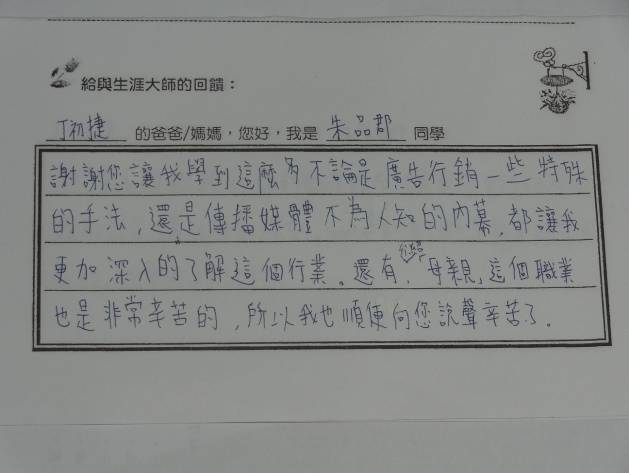 給與生涯大師的回饋：
丁初捷 的爸爸/媽媽，您好，我是 朱品郡 同學
謝謝您讓我學到這麼多不論是廣告行銷一些特殊
的手法，還是傳播媒體不為人知的內幕，都讓我
更加深入的了解這個行業。還有，母親，這個職業
也是非常辛苦的，所以我也順便向您說聲辛苦了。